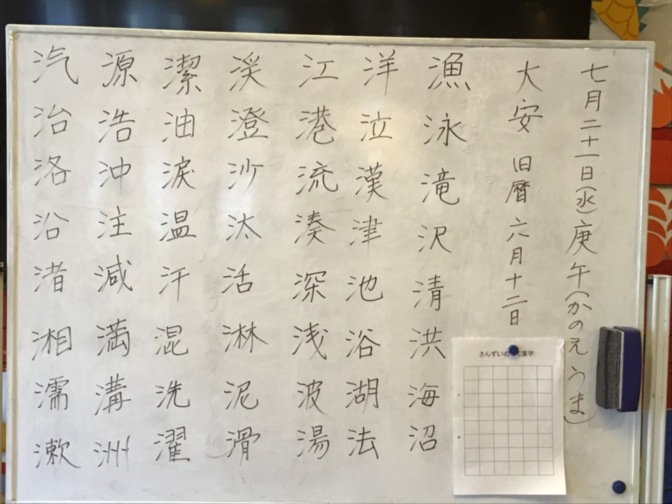 七月二十一日(水)庚午(かのえうま)
大安 旧暦六月十二日
漁泳滝沢清洪海沼
洋泣漢津池浴湖法
江港流湊深浅波湯
渓澄沙汰活淋泥滑
潔油涙温汗混洗濯
源浩沖注減満溝洲
汽治洛沿渚湘濡漱
さんずいの 漢字